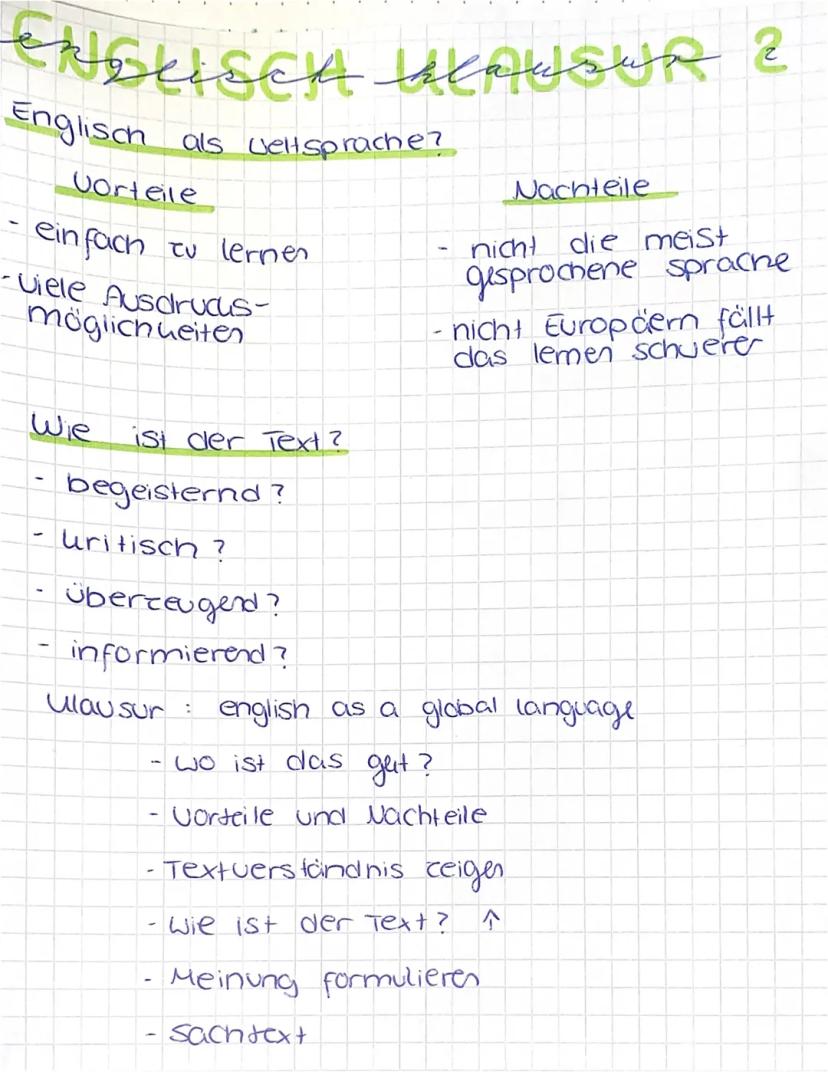 ENGLISCH KLAUSUR 2
englisch klausur 2
Englisch als Weltsprache?
Vorteile
- einfach zu lernen
- Viele Ausdrucks-
möglichkeiten
Nachteile
- nicht die meist
gesprochene sprache
- nicht Europäern fällt
das lernen schwerer
Wie ist der Text?
- begeisternd?
- kritisch?
- überzeugend?
- informierend?
Klausur : english as a global language
- wo ist das gut?
- Vorteile und Nachteile
- Textverständnis zeigen
- Wie ist der Text? ↑
- Meinung formulieren
- Sachtext